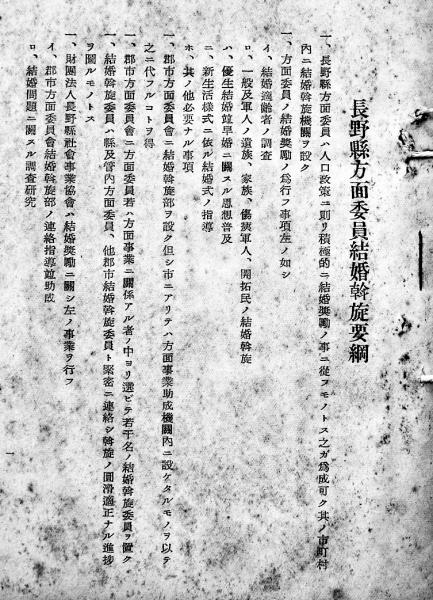 長野縣方面委員結婚斡旋要綱
一、長野縣方面委員ハ人口政策ニ則リ積極的ニ結婚奬勵ノ事ニ從フモノトス之ガ爲成可ク其ノ市町村
內ニ結婚斡旋機關ヲ設ク
一、方面委員ノ結婚奬勵ノ爲行フ事項左ノ如シ
イ、結婚適齡者ノ調査
ロ、一般及軍人ノ遺族、家族、傷痍軍人、開拓民ノ結婚斡旋
ハ、優生結婚竝早婚ニ關スル思想普及
ニ、新生活樣式ニ依ル結婚式ノ指導
ホ、其ノ他必要ナル事項
一、郡市方面委員會ニ結婚斡旋部ヲ設ク但シ市ニアリテハ方面事業助成機關內ニ設ケタルモノヲ以テ
之ニ代フルコトヲ得
一、郡市方面委員會ニ方面委員若ハ方面事業ニ關係アル者ノ中ヨリ選ビテ若干名ノ結婚斡旋委員ヲ置ク
一、結婚斡旋委員ハ縣及管內方面委員、他郡市結婚斡旋委員ト緊密ニ連絡シ斡旋ノ圓滑適正ナル進捗
ヲ圖ルモノトス
一、財團法人長野縣社會事業協會ハ結婚奬勵ニ關シ左ノ事業ヲ行フ
イ、郡市方面委員會結婚斡旋部ノ連絡指導竝助成
ロ、結婚問題ニ關スル調査硏究
一